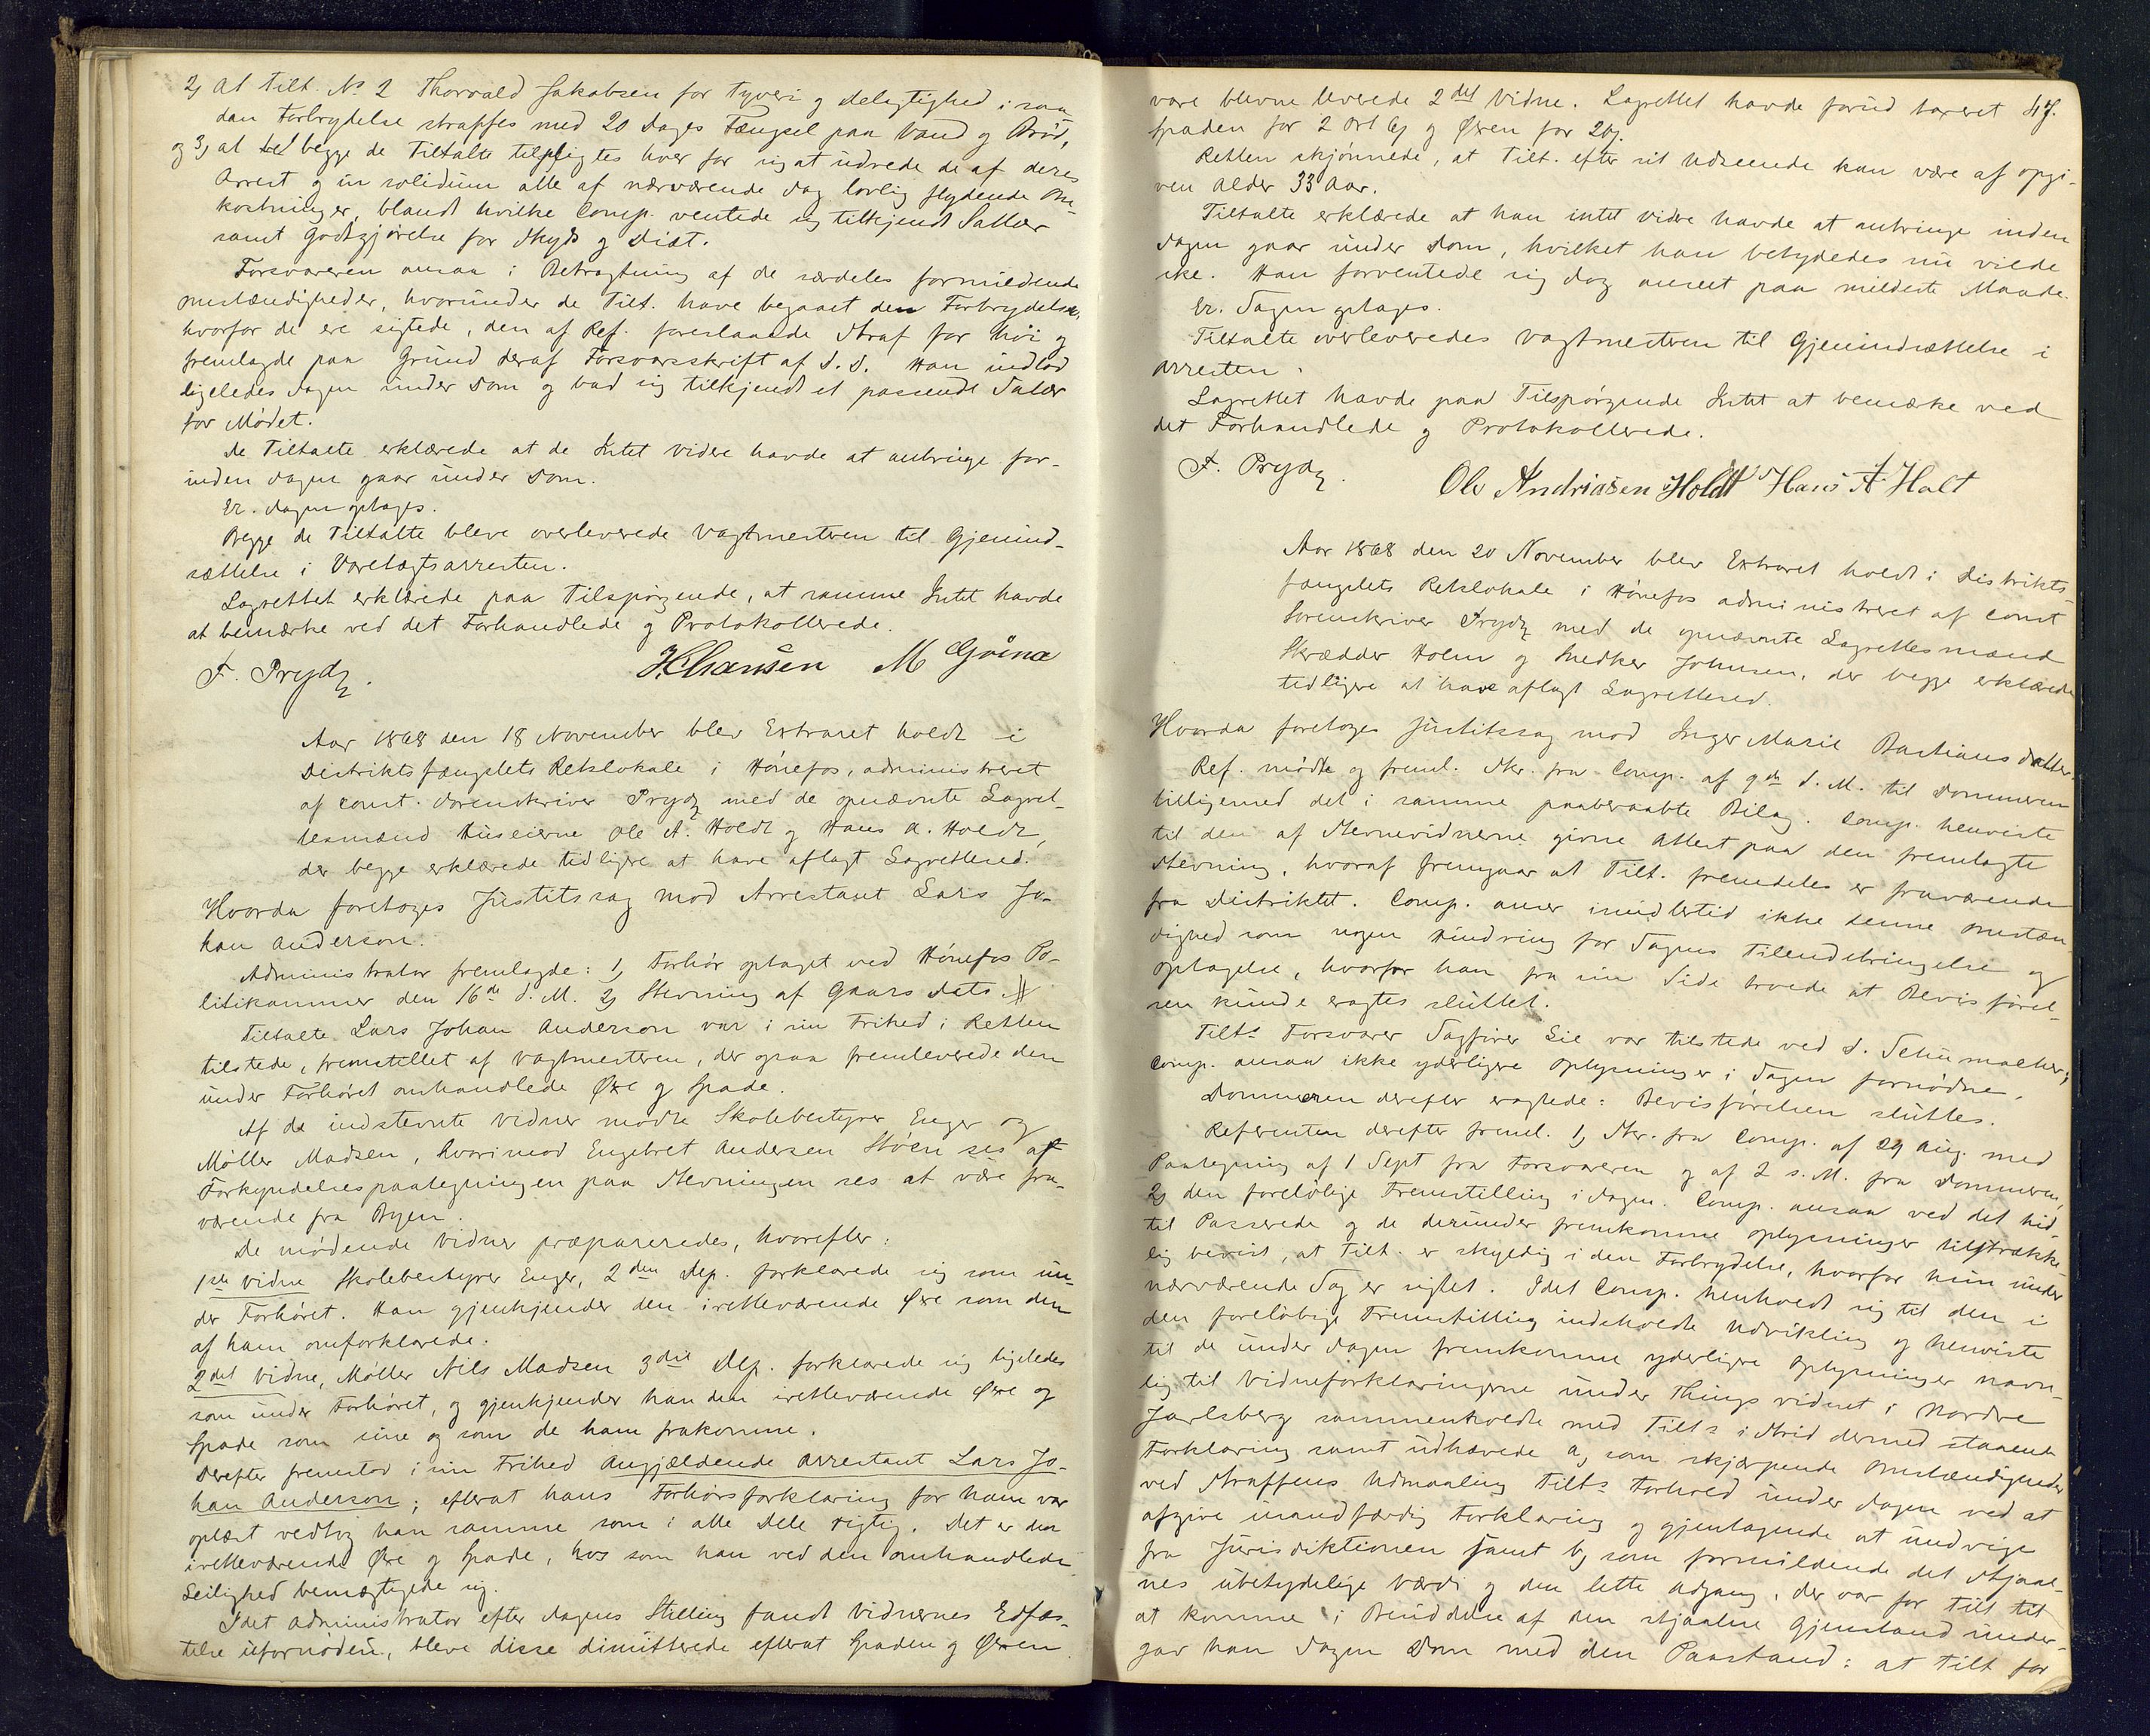 2, at Tilt. No 2 Thorvald Jakobsen for Tyveri og Delagtighed i saa-
dan Forbrydelse straffes med 20 Dages Fængsel paa Vand og Brød,
og 3, at begge de Tiltalte tilpligtes hver for sig at udrede de af deres
Arrest og in solidum alle af nærværende Sag lovlig flydende Om-
kostninger, blandt hvilke Comp. ventede sig tilkjendt Salær
samt Godtgjørelse for Skyds og Diæt.
Forsvareren ansaa i Betragtning af de særdeles formildende
Omstændigheder, hvorunder de Tilt. have begaaet den Forbrydelse,
hvorfor de ere sigtede, den af Ref. foreslaaede Straf for høi og
fremlagde paa Grund deraf Forsvarsskrift af D. D. Han indlod
ligeledes Sagen under Dom og bad sig tilkjendt et passende Salær
for Mødet.
De Tiltalte erklærede at de Intet videre havde at anbringe for-
inden Sagen gaar under Dom.
Er. Sagen optages.
Begge de Tiltalte bleve overleverede Vagtmesteren til Gjenind-
sættelse i Varetægtsarresten.
Lagrettet erklærede paa Tilspørgende, at samme Intet havde
at bemærke ved det Forhandlede og Protokollerede.
F. Prydz. HChansen M Gåina
Aar 1868 den 18 November blev Extraret holdt i
Distriktsfængslets Retslokale i Hønefos, administreret
af const. Sorenskriver Prydz med de opnævnte Lagret-
tesmænd Huseierne Ole A. Holdt og Hans A. Holdt,
der begge erklærede tidligere at have aflagt Lagretteed.
Hvorda foretoges Justitssag mod Arrestant Lars Jo-
han Anderson.
Administrator fremlagde: 1, Forhør optaget ved Hønefos Po-
litikammer den 16de d. M. 2, Stevning af Gaars Dato.
Tiltalte Lars Johan Anderson var i sin Frihed i Retten
tilstede, fremstillet af Vagtmesteren, der ogsaa fremleverede den
under Forhøret omhandlede Øxe og Spade.
Af de indstevnte Vidner mødte Skolebestyrer Enger og
Møller Madsen, hvorimod Engebret Andersen Støen ses af
Forkyndelsespaategningen paa Stevningen ses at være fra-
værende fra Byen.
De mødende Vidner præpareredes, hvorefter:
1ste Vidne Skolebestyrer Enger, 2den Dep. forklarede sig som un-
der Forhøret. Han gjenkjender den iretteværende Øxe som den
af ham omforklarede.
2det Vidne, Møller Nils Madsen 3die Dep. forklarede sig ligeledes
som under Forhøret, og gjenkjender han den iretteværende Øxe og
Spade som sine og som de ham frakomne.
Derefter fremstod i sin Frihed Angjældende Arrestant Lars Jo-
han Anderson; efterat hans Forhørsforklaring for ham var
oplæst vedtog han samme som i alle Dele rigtig. Det er den
iretteværende Øxe og Spade, som han ved den omhandlede
Leilighed bemægtigede sig.
Idet Administrator efter Sagens Stilling fandt Vidnernes Edfæs-
telse ufornøden, bleve disse dimitterede efterat Spaden og Øxen
vare blevne leverede 2det Vidne. Lagrettet havde forud taxeret
Spaden for 2 Ort og Øxen for
Retten skjønnede, at Tilt. efter sit Udseende kan være af opgi-
ven Alder 33 Aar.
Tiltalte erklærede at han intet videre havde at anbringe inden
Sagen gaar under Dom, hvilket han betydedes nu vilde
ske. Han forventede sig dog anseet paa mildeste Maade.
Er. Sagen optages.
Tiltalte overleveredes Vagtmesteren til Gjenindsættelse i
Arresten.
Lagrettet havde paa Tilspørgende Intet at bemærke ved
det Forhandlede og Protokollerede.
F. Prydz. Ole Andriasen Holdt Hans A Holt
Aar 1868 den 20 November blev Extraret holdt i Distrikts-
fængslets Retslokale i Hønefos administreret af const
Sorenskriver Prydz med de opnævnte Lagrettesmænd
Skrædder Holm og Snedker Johnsen, der begge erklærede
tidligere at have aflagt Lagretteed.
Hvorda foretoges Justitssag mod Inger Marie Bastiansdatter.
Ref. mødte og freml. Skr. fra Comp. af 9de d. M. til Dommeren
tilligemed det i samme paaberaabte Bilag. Comp. henviste
til den af Stevnevidnerne givne Attest paa den fremlagte
Stevning, hvoraf fremgaar at Tilt. fremdeles er fraværende
fra Distriktet. Comp. anser imidlertid ikke denne Omstæn-
dighed som nogen Hindring for Sagens Tilendebringelse og
Optagelse, hvorfor han fra sin Side troede at Bevisførel-
sen kunde eragtes sluttet.
Tilts Forsvarer Sagfører Lie var tilstede ved S. Schumacher;
Comp. ansaa ikke yderligere Oplysninger i Sagen fornødne.
Dommeren derefter eragtede: Bevisførelsen sluttes.
Referenten derefter freml. 1, Skr. fra Comp. af 29 Aug. med
Paategning af 1 Sept fra Forsvareren og af 2 s. M. fra Dommeren,
2, den foreløbige Fremstilling i Sagen. Comp. ansaa ved det hid-
til Passerede og de derunder fremkomne Oplysninger tilstrække-
lig bevist, at Tilt. er skyldig i den Forbrydelse, hvorfor hun under
nærværende Sag er sigtet. Idet Comp. henholdt sig til den i
den foreløbige Fremstilling indeholdte Udvikling og henviste
til de under Sagen fremkomne yderligere Oplysninger navn-
lig til Vidneforklaringerne under Thingsvidnet i Nordre
Jarlsberg sammenholdte med Tilts i Strid dermed staaende
Forklaring samt udhævede a, som skjærpende Omstændigheder
ved Straffens Udmaaling Tilts Forhold under Sagen ved at
afgive usandfærdig Forklaring og gjentagende at undvige
fra Jurisdiktionen samt b, som formildende det Stjaal-
nes ubetydelige Værdi og den lette Adgang, der var for Tilt til
at komme i Besiddelse af den stjaalne Gjenstand under-
gav han Sagen Dom med den Paastand: at Tilt for